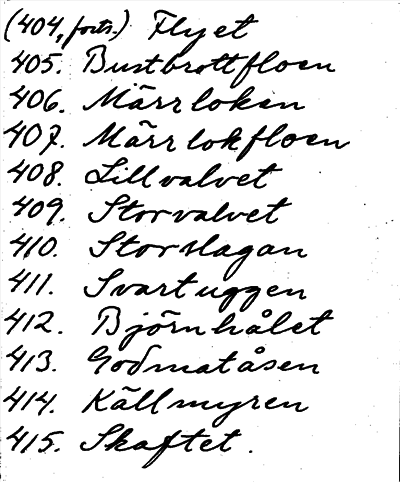 (404, forts.) Flyet
405. Bustbrottfloen
406. Märrloken
407. Märrlokfloen
408. Lillvalvet
409. Storvalvet
410. Storslagan
411. Svartuggen
412. Björnhålet
413. Godmatåsen
414. Källmyren
415. Skaftet.